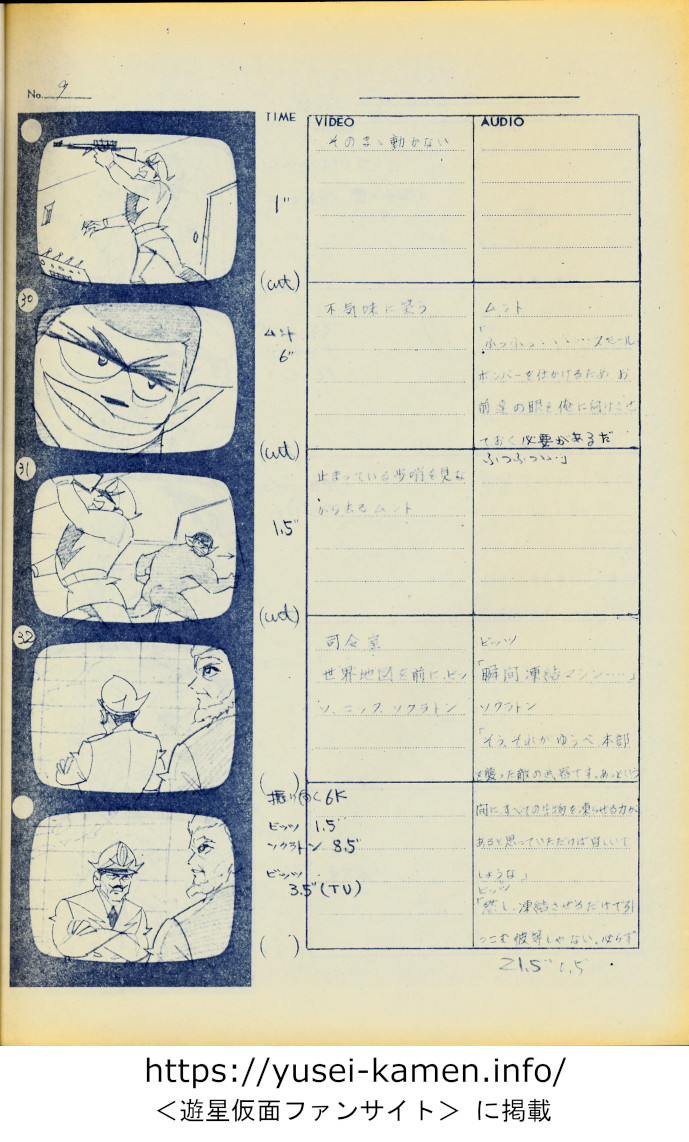 No. 9
TIME VIDEO AUDIO
そのまゝ動かない
1"
(cut)
30
ムント
6"
不気味に笑う
ムント
「ふっふっ・・・・・スモール
ボンバーを仕かけるため お
前達の眼を俺に向けさせ
ておく必要があるだ
ふっふっふっ…」
(cut)
31
1.5"
止まっている歩哨を見な
がら去る ムント
(cut)
32
司令室
世界地図を前に、ピッ
ツ、ニック、ソクラトン
ピッツ
「瞬間凍結マシン……」
ソクラトン
「そう、それがゆうべ 本部
を襲った敵の武器です。あっという
( )
振り向く 6K
ピッツ 1.5"
ソクラトン 8.5"
ピッツ
3.5" (TU)
間に、すべての生物を凍らせる力が
あると思っていただけば
しょうな」
ピッツ
「然し、凍結させるだけで引
っこむ彼等じゃない。必らず
( )
21.5" 1.5
https://yusei-kamen.info/
＜遊星仮面ファンサイト＞ に掲載